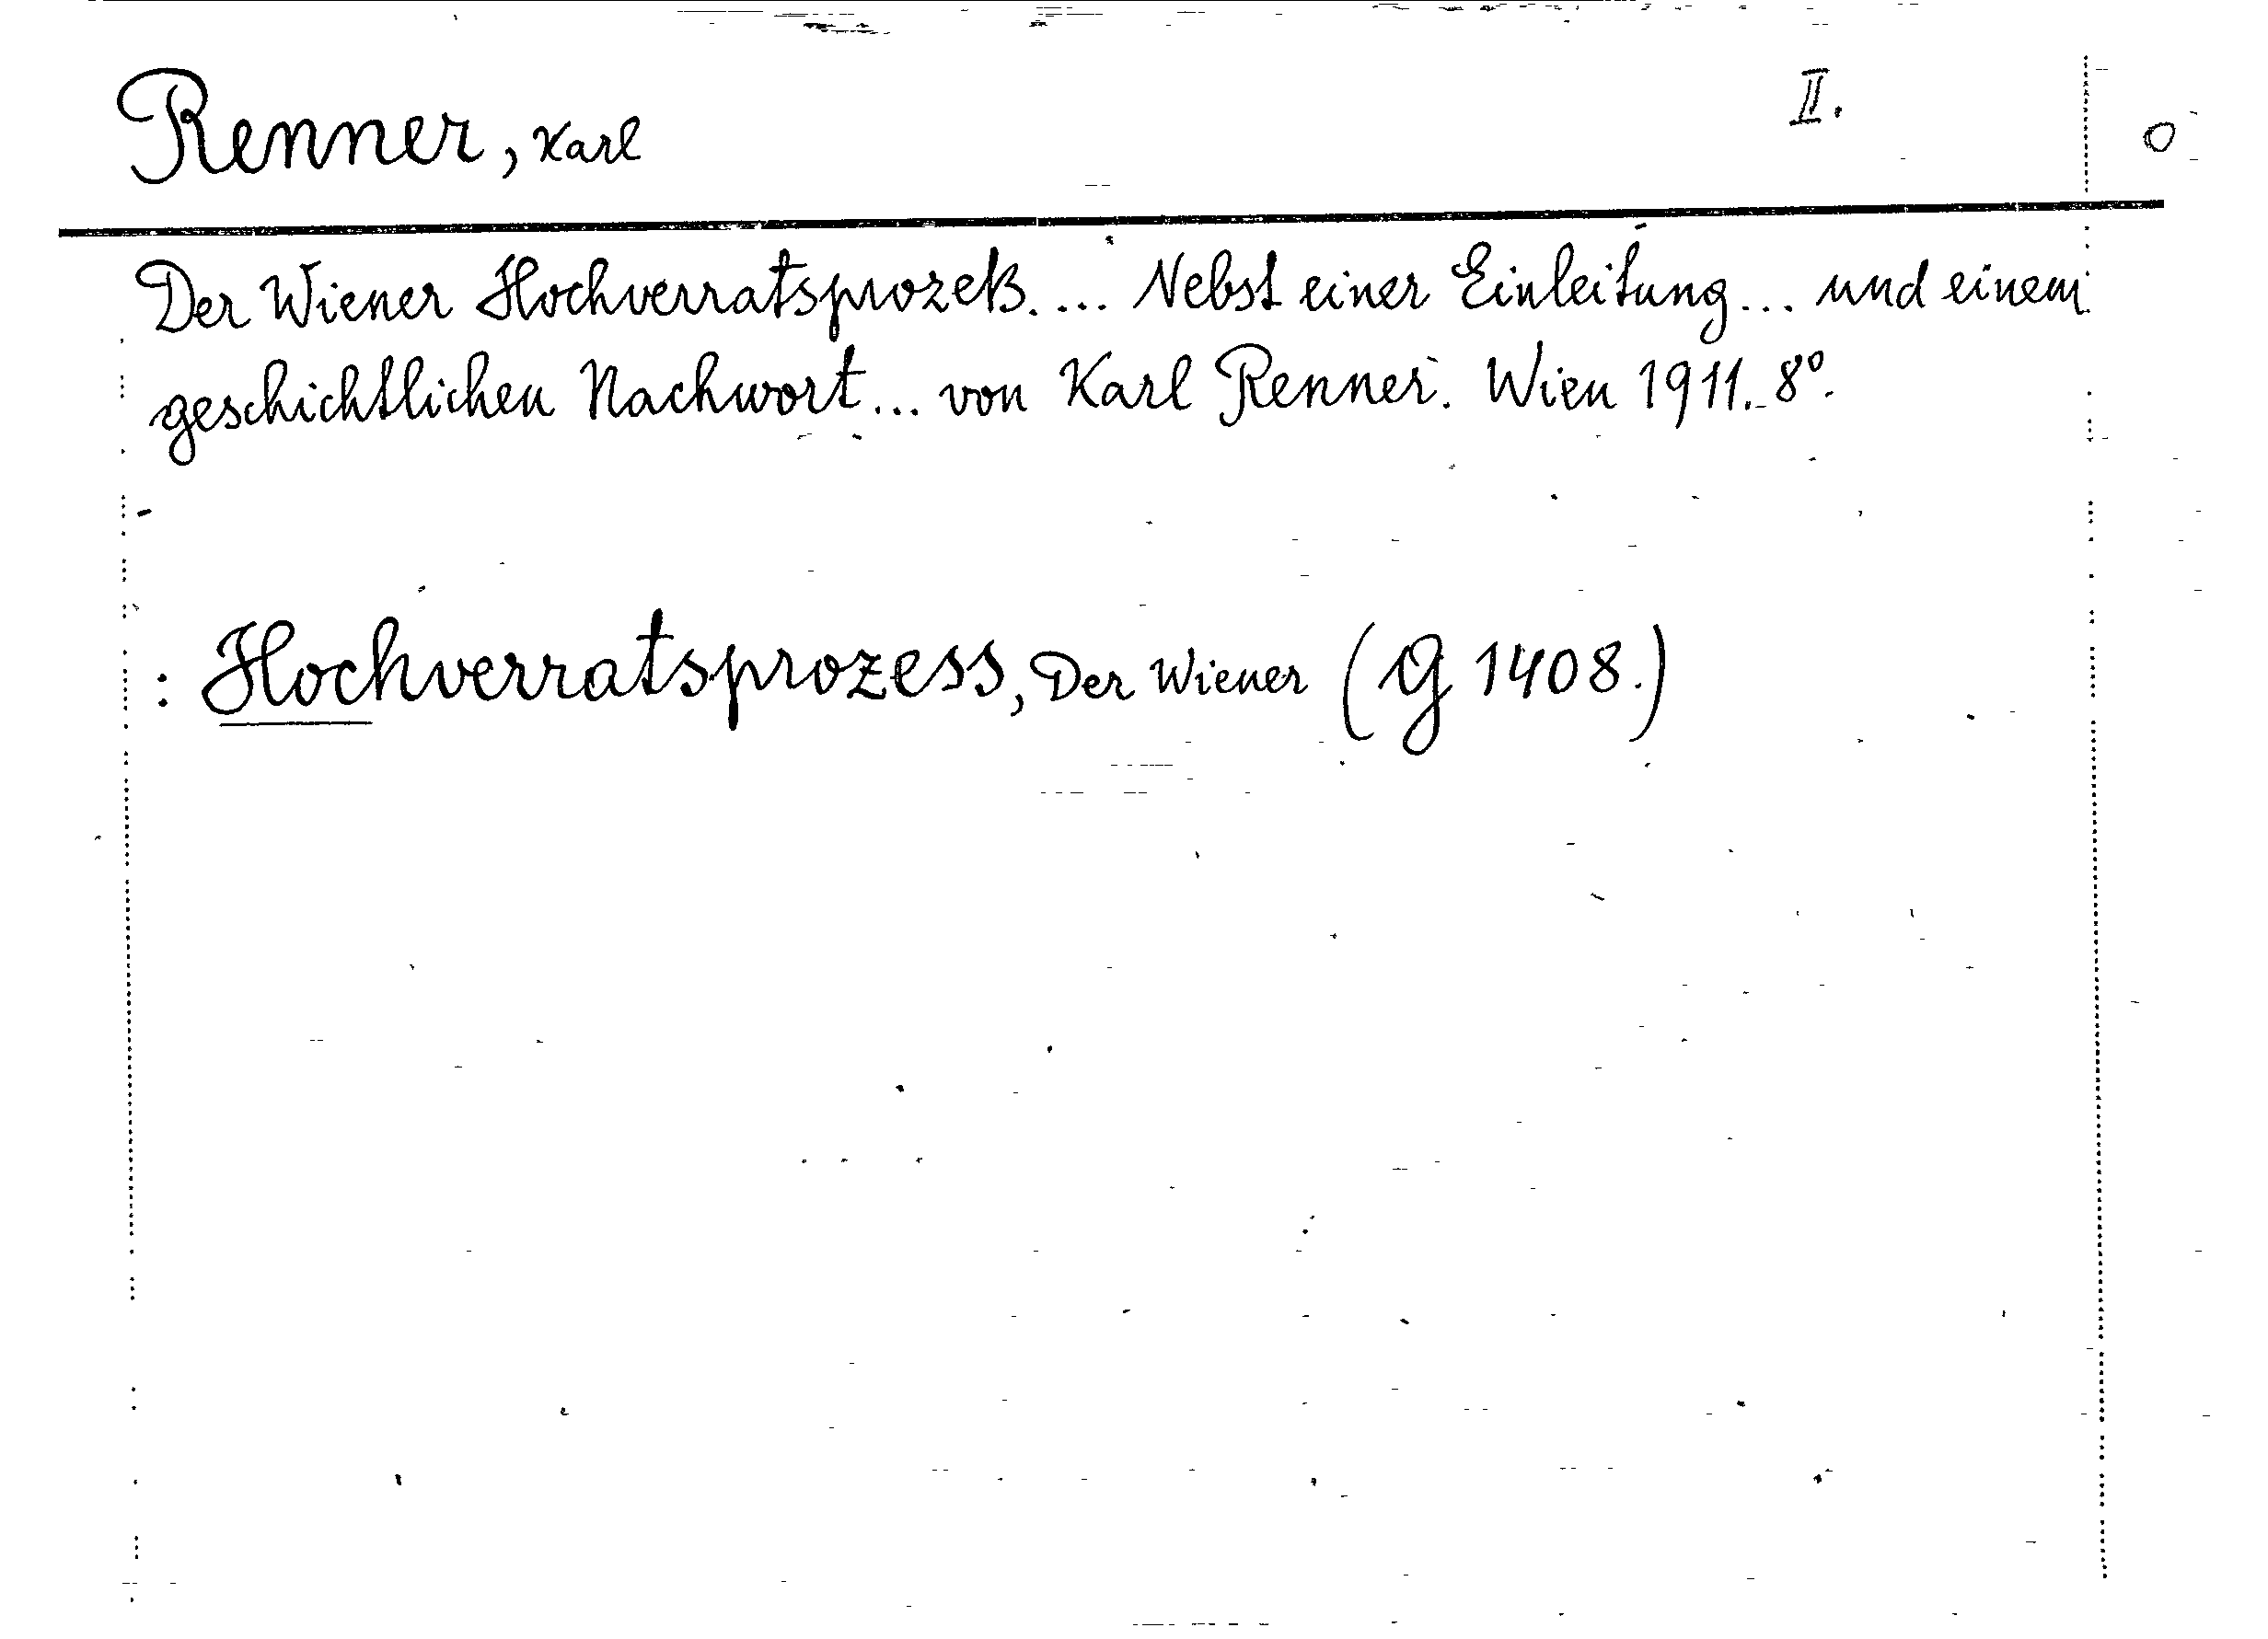 Renner, Karl II. O
Der Wiener Hochverratsprozeß. ... Nebst einer Einleitung ... und einem
geschichtlichen Nachwort ... von Karl Renner. Wien 1911. 8°.
: Hochverratsprozess, Der Wiener (G 1408.)